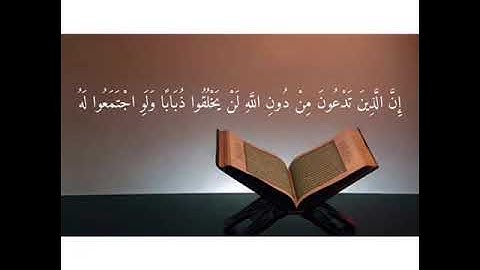 إِنَّ الَّذِينَ تَدْعُونَ مِنْ دُونِ اللَّهِ لَنْ يَخْلُقُوا ذُبَابًا وَلَوِ اجْتَمَعُوا لَهُ